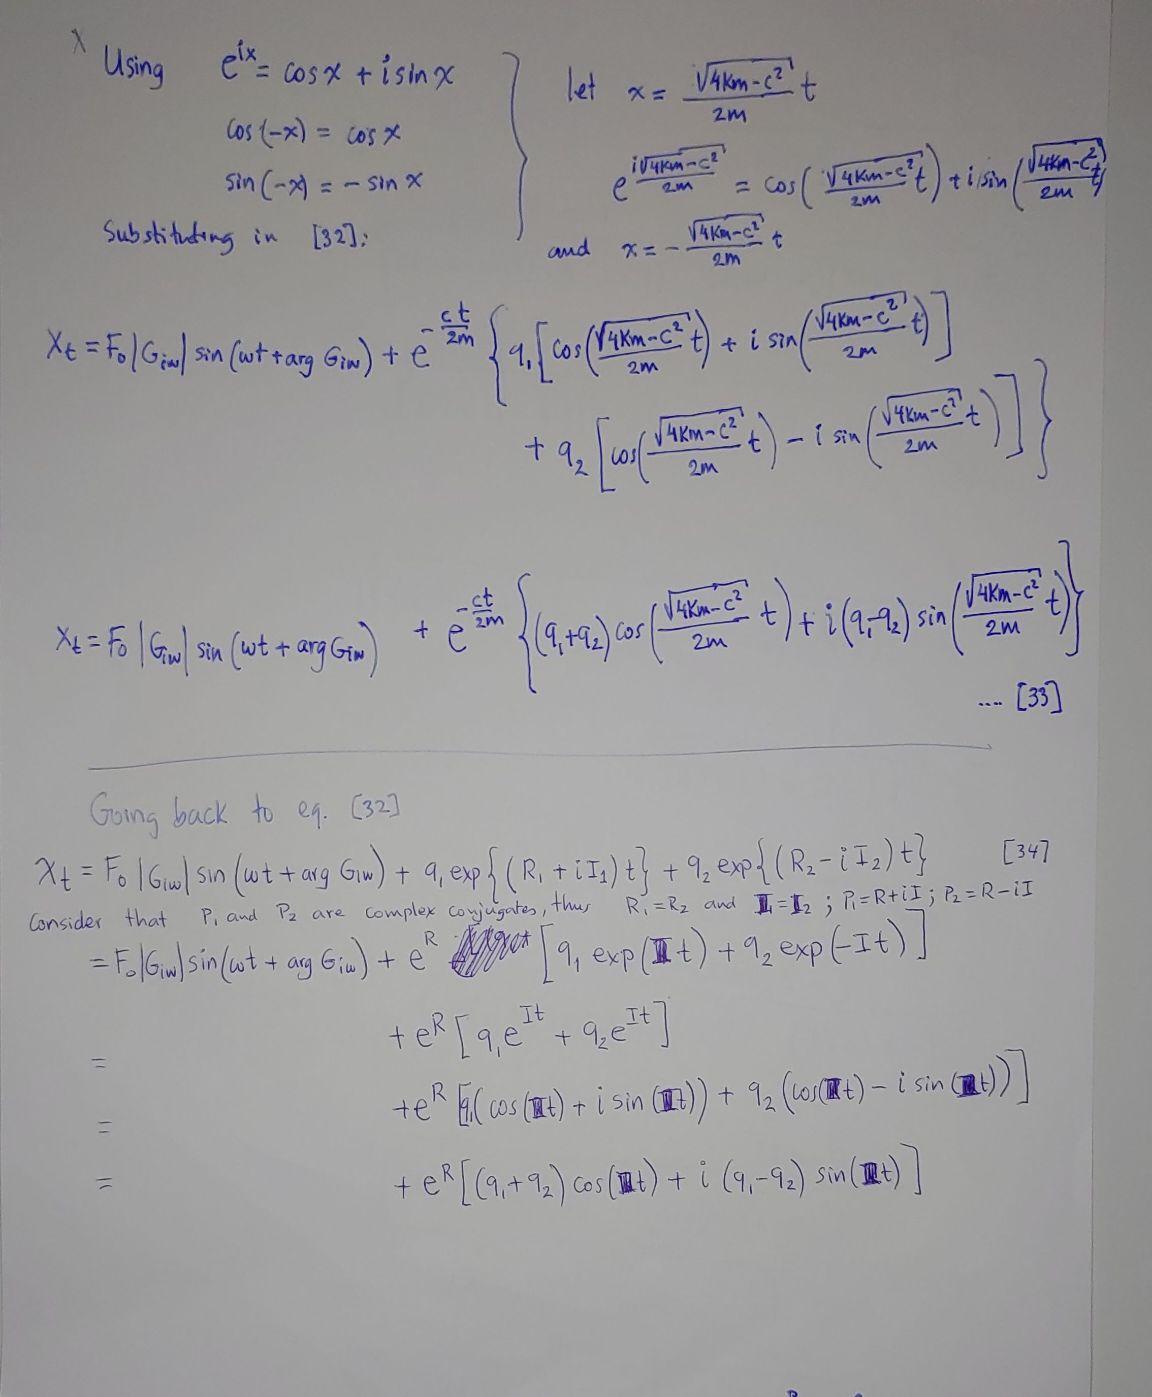 x
Using e^{ix} = cos x + i sin x
cos(-x) = cos x
sin(-x) = - sin x
Substituting in [32]:
let x = \frac{\sqrt{4km-c^2}}{2m} t
e^{\frac{i\sqrt{4km-c^2}}{2m}} = cos(\frac{\sqrt{4km-c^2}}{2m} t) + i sin(\frac{\sqrt{4km-c^2}}{2m} t)
and x = - \frac{\sqrt{4km-c^2}}{2m} t
X_t = F_0 |G_{iw}| sin(wt + arg G_{iw}) + e^{-\frac{ct}{2m}} { q_1 [cos(\frac{\sqrt{4km-c^2}}{2m} t) + i sin(\frac{\sqrt{4km-c^2}}{2m} t)]
+ q_2 [cos(\frac{\sqrt{4km-c^2}}{2m} t) - i sin(\frac{\sqrt{4km-c^2}}{2m} t)] }
X_t = F_0 |G_{iw}| sin(wt + arg G_{iw}) + e^{-\frac{ct}{2m}} { (q_1+q_2) cos(\frac{\sqrt{4km-c^2}}{2m} t) + i (q_1-q_2) sin(\frac{\sqrt{4km-c^2}}{2m} t) }
.... [33]
Going back to eq. [32]
X_t = F_0 |G_{iw}| sin(wt + arg G_{iw}) + q_1 exp{(R_1 + i I_1) t} + q_2 exp{(R_2 - i I_2) t} [34]
Consider that P_1 and P_2 are complex conjugates, thus R_1 = R_2 and I_1 = I_2 ; P_1 = R+iI ; P_2 = R-iI
= F_0 |G_{iw}| sin(wt + arg G_{iw}) + e^R [q_1 exp(It) + q_2 exp(-It)]
= + e^R [q_1 e^{It} + q_2 e^{It}]
= + e^R [q_1( cos(It) + i sin(It)) + q_2 (cos(It) - i sin(It))]
= + e^R [(q_1+q_2) cos(It) + i (q_1-q_2) sin(It)]